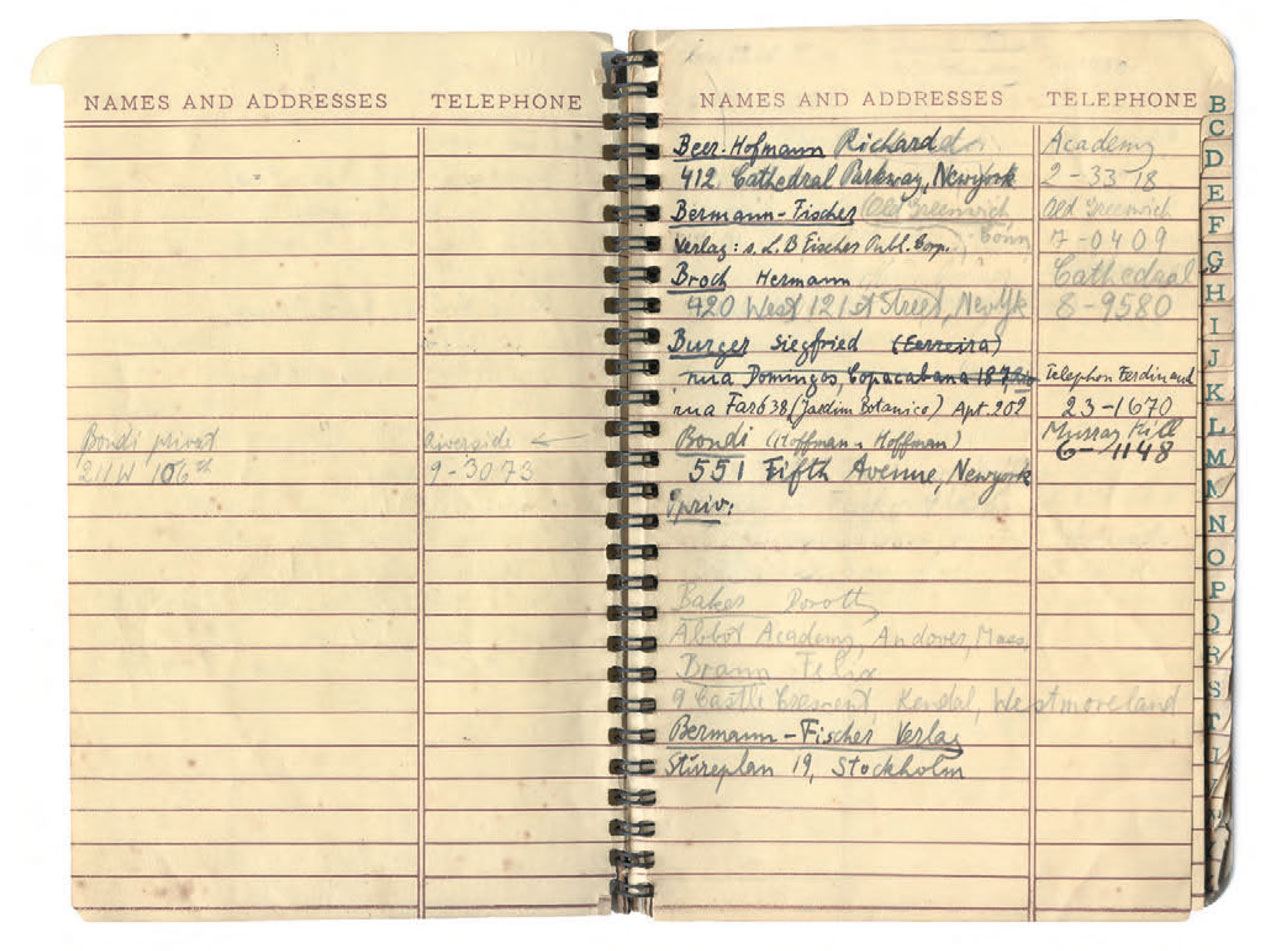 NAMES AND ADDRESSES TELEPHONE
Bondi privat Riverside ←
211 W 106th 9-3073
NAMES AND ADDRESSES TELEPHONE
Beer-Hofmann Richard Academy
412 Cathedral Parkway, Newyork 2-3318
Bermann-Fischer (Old Greenwich Old Greenwich
Verlag: s. L.B Fischer Publ. Corp. ), Conn 7-0409
Broch Hermann Cathedral
420 West 121st Street, NewYk 8-9580
Burger Siegfried (Ferreira)
rua Domingos, Copacabana 187, Rio Telephon Ferdinand
rua Faro 38 (Jardim Botanico) Apt. 202 23-1670
Bondi (Hoffman u Hoffman) Murray Hill
551 Fifth Avenue, Newyork 6-1148
priv:
Baker Dorothy
Abbot Academy, Andover, Mass.
Braun Felix
9 Castle Crescent, Kendal, Westmoreland
Bermann-Fischer Verlag
Stureplan 19, Stockholm
B
C
D
E
F
G
H
I
J
K
L
M
N
O
P
Q
R
S
T